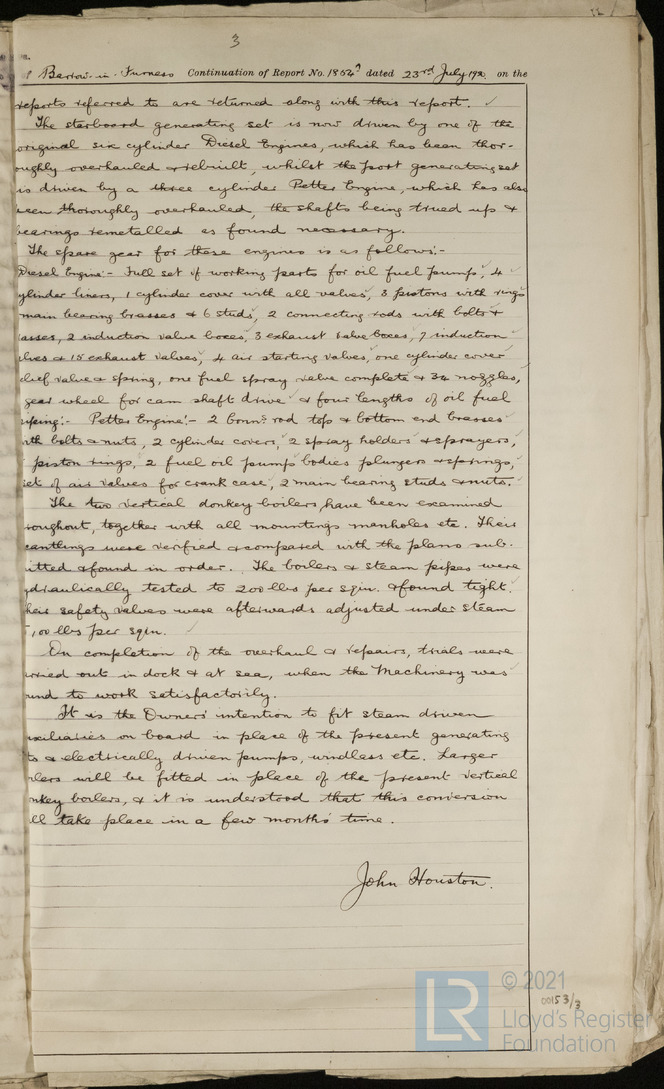 3
Barrow-in-Furness Continuation of Report No. 1864 dated 23rd July 192 on the
reports referred to are returned along with this report.
The starboard generating set is now driven by one of the
original six cylinder Diesel Engines, which has been thor-
oughly overhauled & rebuilt, whilst the port generating set
is driven by a three cylinder Petter Engine, which has also
been thoroughly overhauled, the shafts being trued up &
bearings remetalled as found necessary.
The spare gear for these engines is as follows:-
Diesel Engine:- Full set of working parts for oil fuel pumps, 4
ylinder liners, 1 cylinder cover with all valves, 3 pistons with rings
main bearing brasses & 6 studs, 2 connecting rods with bolts &
asses, 2 induction valve boxes, 3 exhaust valve boxes, 7 induction
lves & 15 exhaust valves, 4 air starting valves, one cylinder cover
elief valve & spring, one fuel spray valve complete & 34 nozzles,
gear wheel for cam shaft drive & four lengths of oil fuel
piping:- Petter Engine:- 2 conng rod top & bottom end brasses
ith bolts & nuts, 2 cylinder covers, 2 spray holders & sprayers,
piston rings, 2 fuel oil pump bodies plungers & springs,
set of air valves for crank case, 2 main bearing studs & nuts.
The two vertical donkey boilers, have been examined
roughout, together with all mountings manholes etc. Their
cantlings were verified & compared with the plans sub-
itted & found in order. The boilers & steam pipes were
ydraulically tested to 200 lbs per sqin. & found tight.
heir safety valves were afterwards adjusted under steam
100 lbs per sqin.
On completion of the overhaul & repairs, trials were
arried out in dock & at sea, when the Machinery was
ound to work satisfactorily.
It is the Owners' intention to fit steam driven
uxiliaries on board in place of the present generating
ts & electrically driven pumps, windlass etc. Larger
oilers will be fitted in place of the present vertical
onkey boilers, & it is understood that this conversion
ill take place in a few months' time.
John Houston.
LR © 2021
Lloyd's Register
Foundation
00153/3